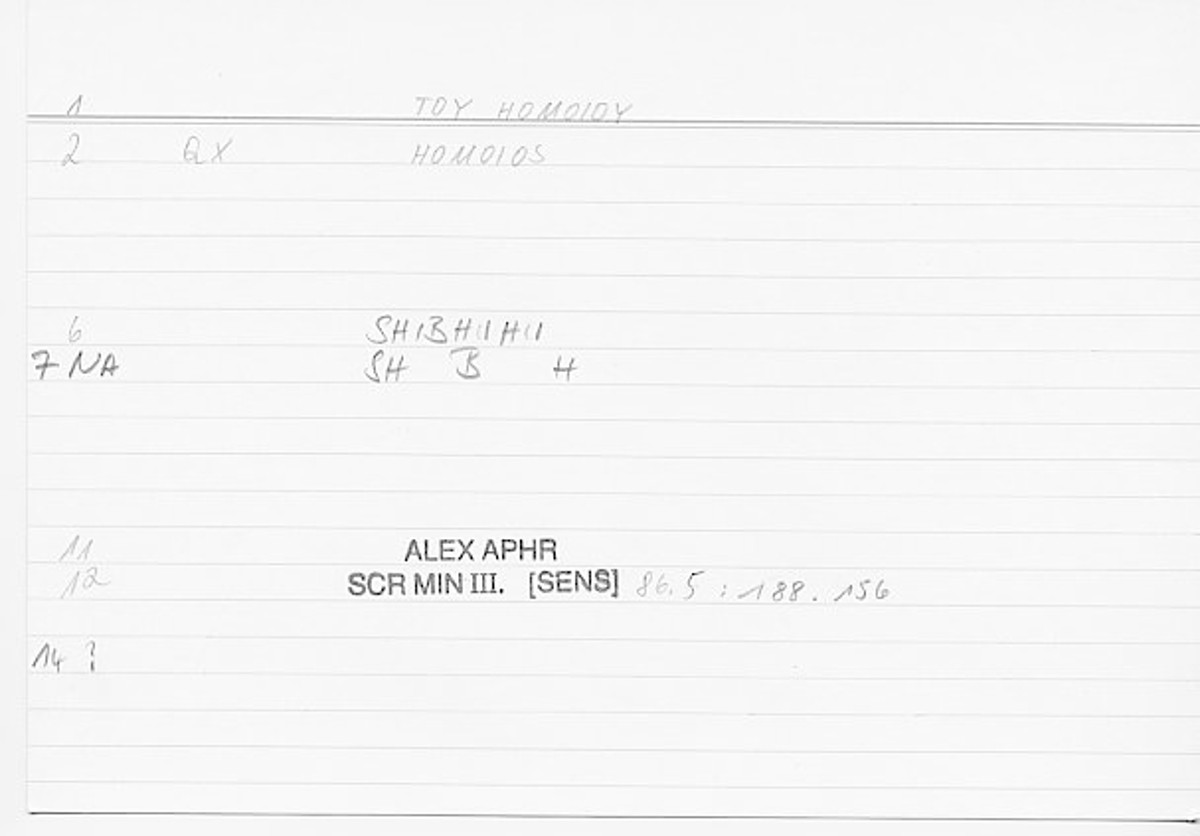 1 TOY HOMOIOY
2 QX HOMOIOS
6 SHIBHIIHII
7 NA SH B H
11 ALEX APHR
12 SCR MIN III. [SENS] 86.5 : 188. 156
14 ?